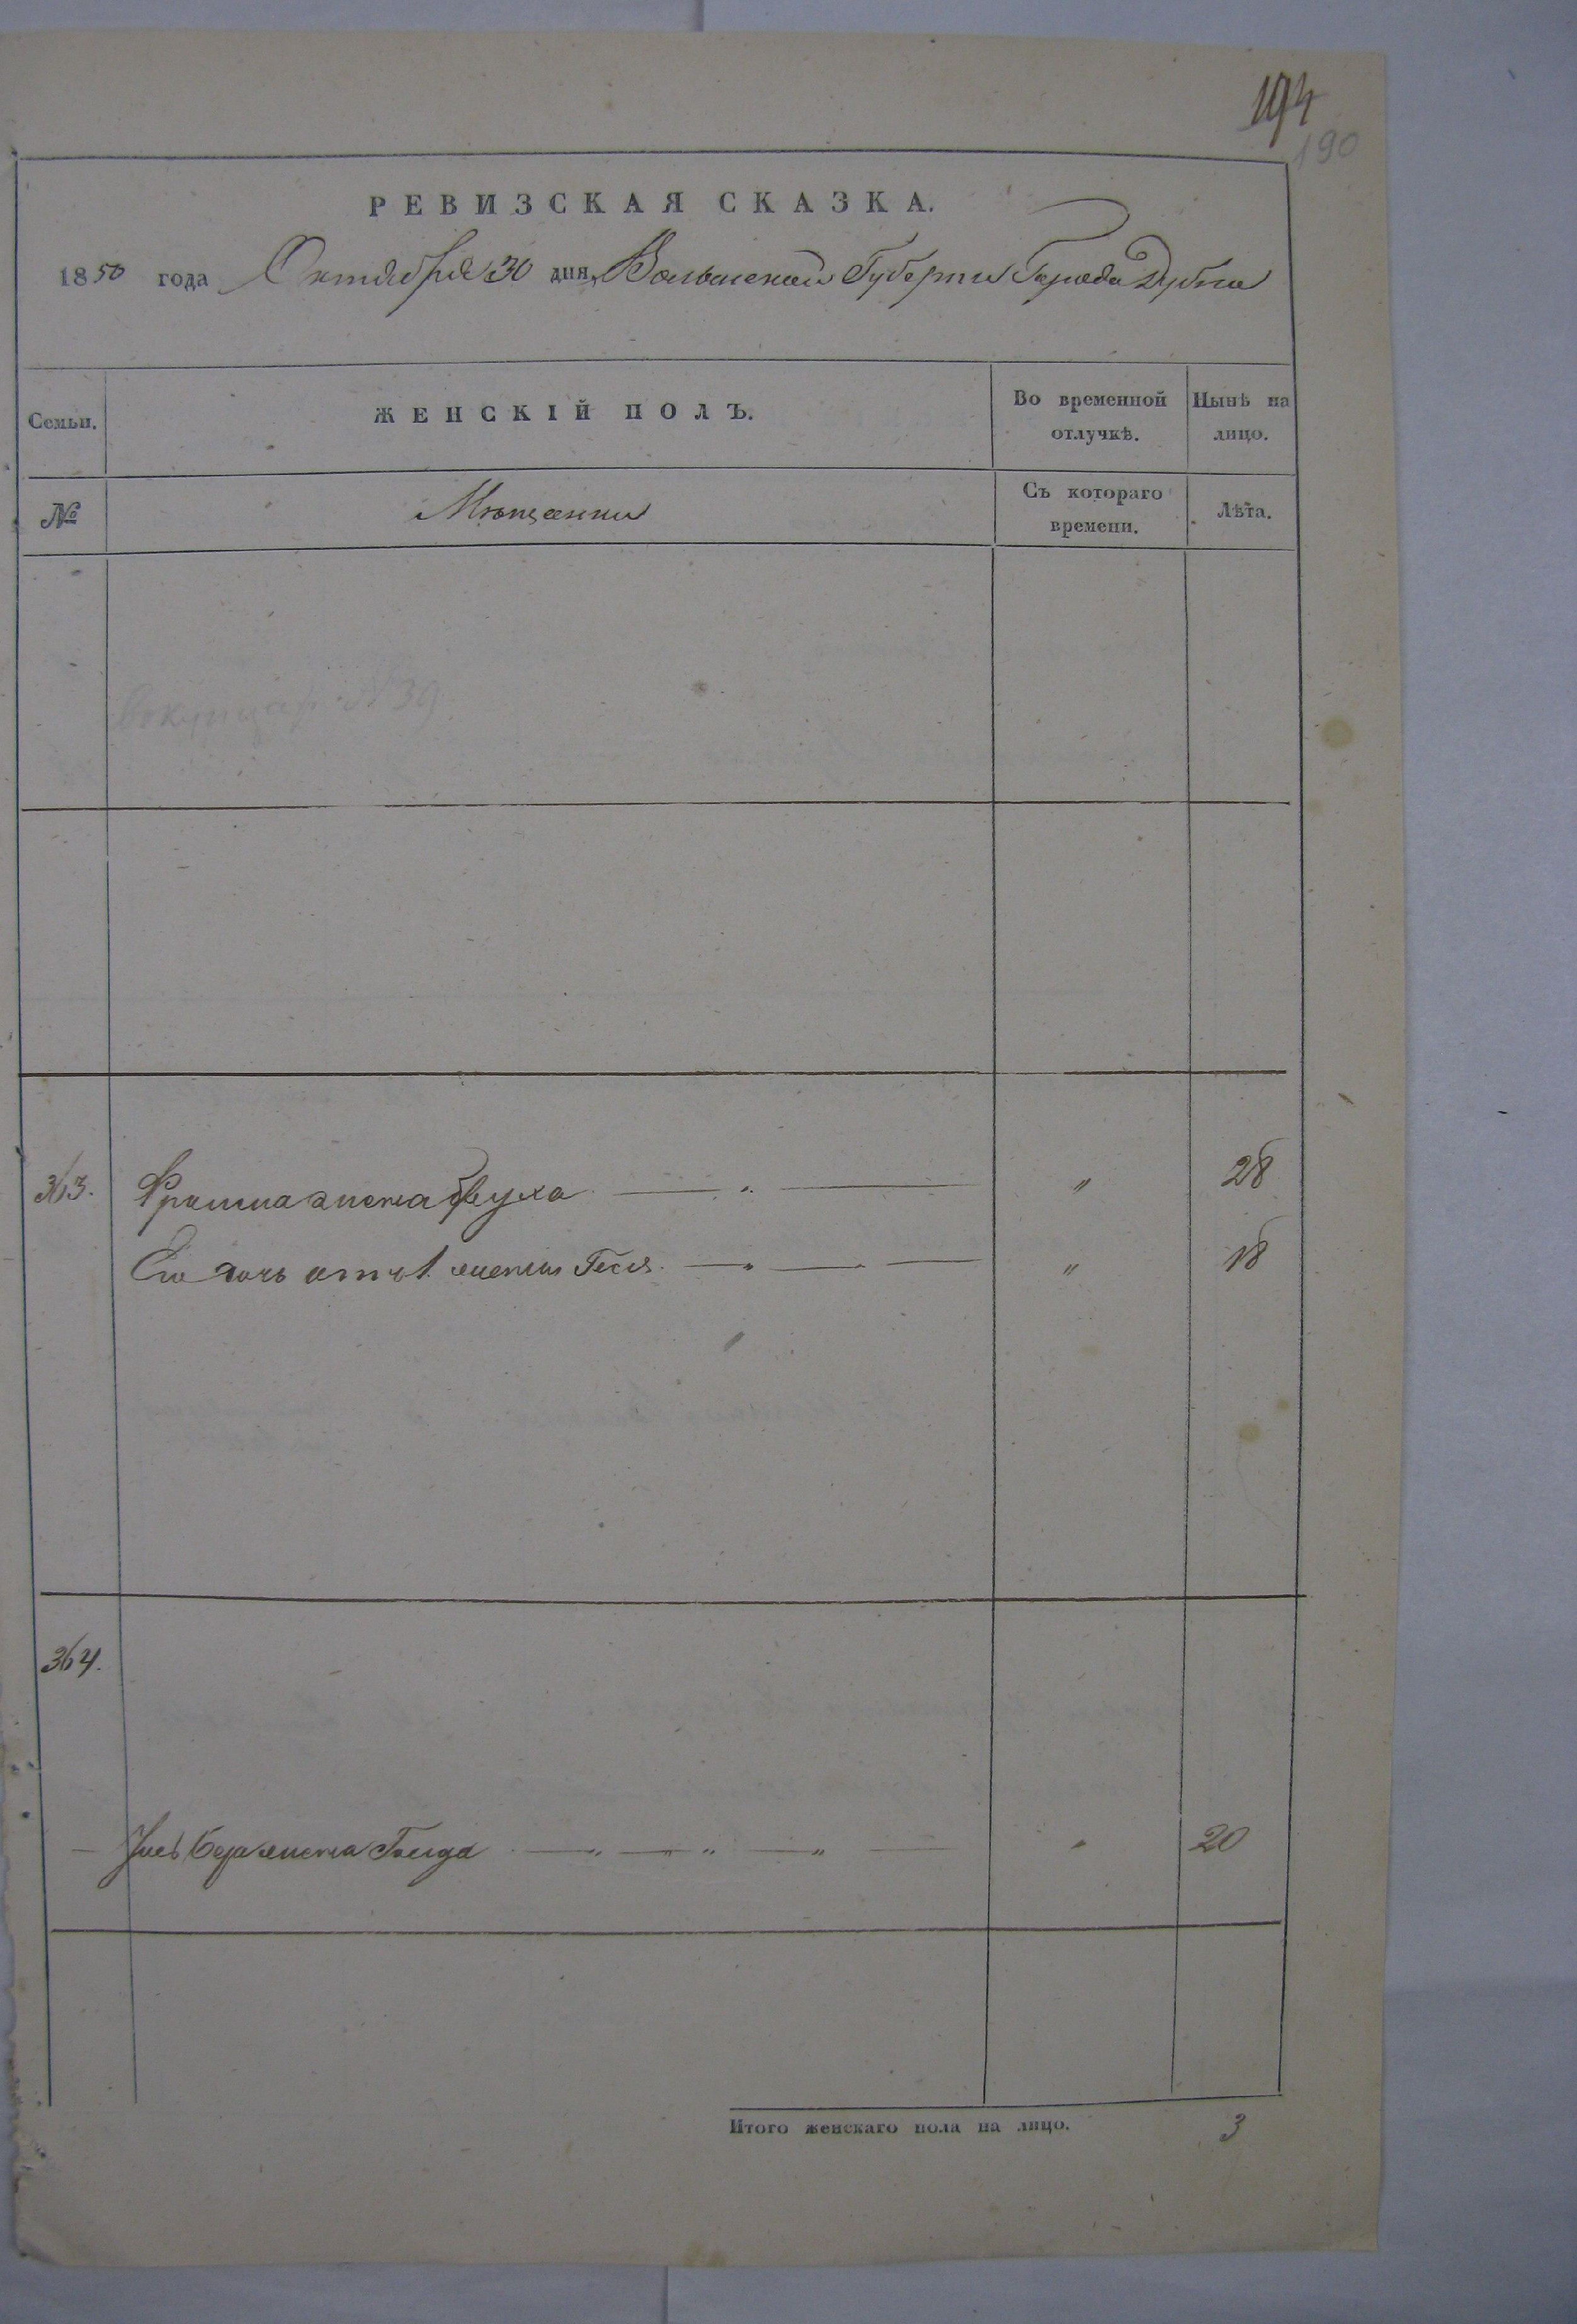 194
190
РЕВИЗСКАЯ СКАЗКА.
1850 года Октября 30 дня Волынской Губерни Города Дубна
Семьи.
ЖЕНСКІЙ ПОЛЪ.
Во временной отлучкѣ.
Нынѣ на лицо.
№
Мѣщанки
Съ котораго времени.
Лѣта.
№39
363. жена " 28
Его дочь отъ 1 жени Геся " " 18
364.
жена Голда " " " " 20
Итого женскаго пола на лицо. 3